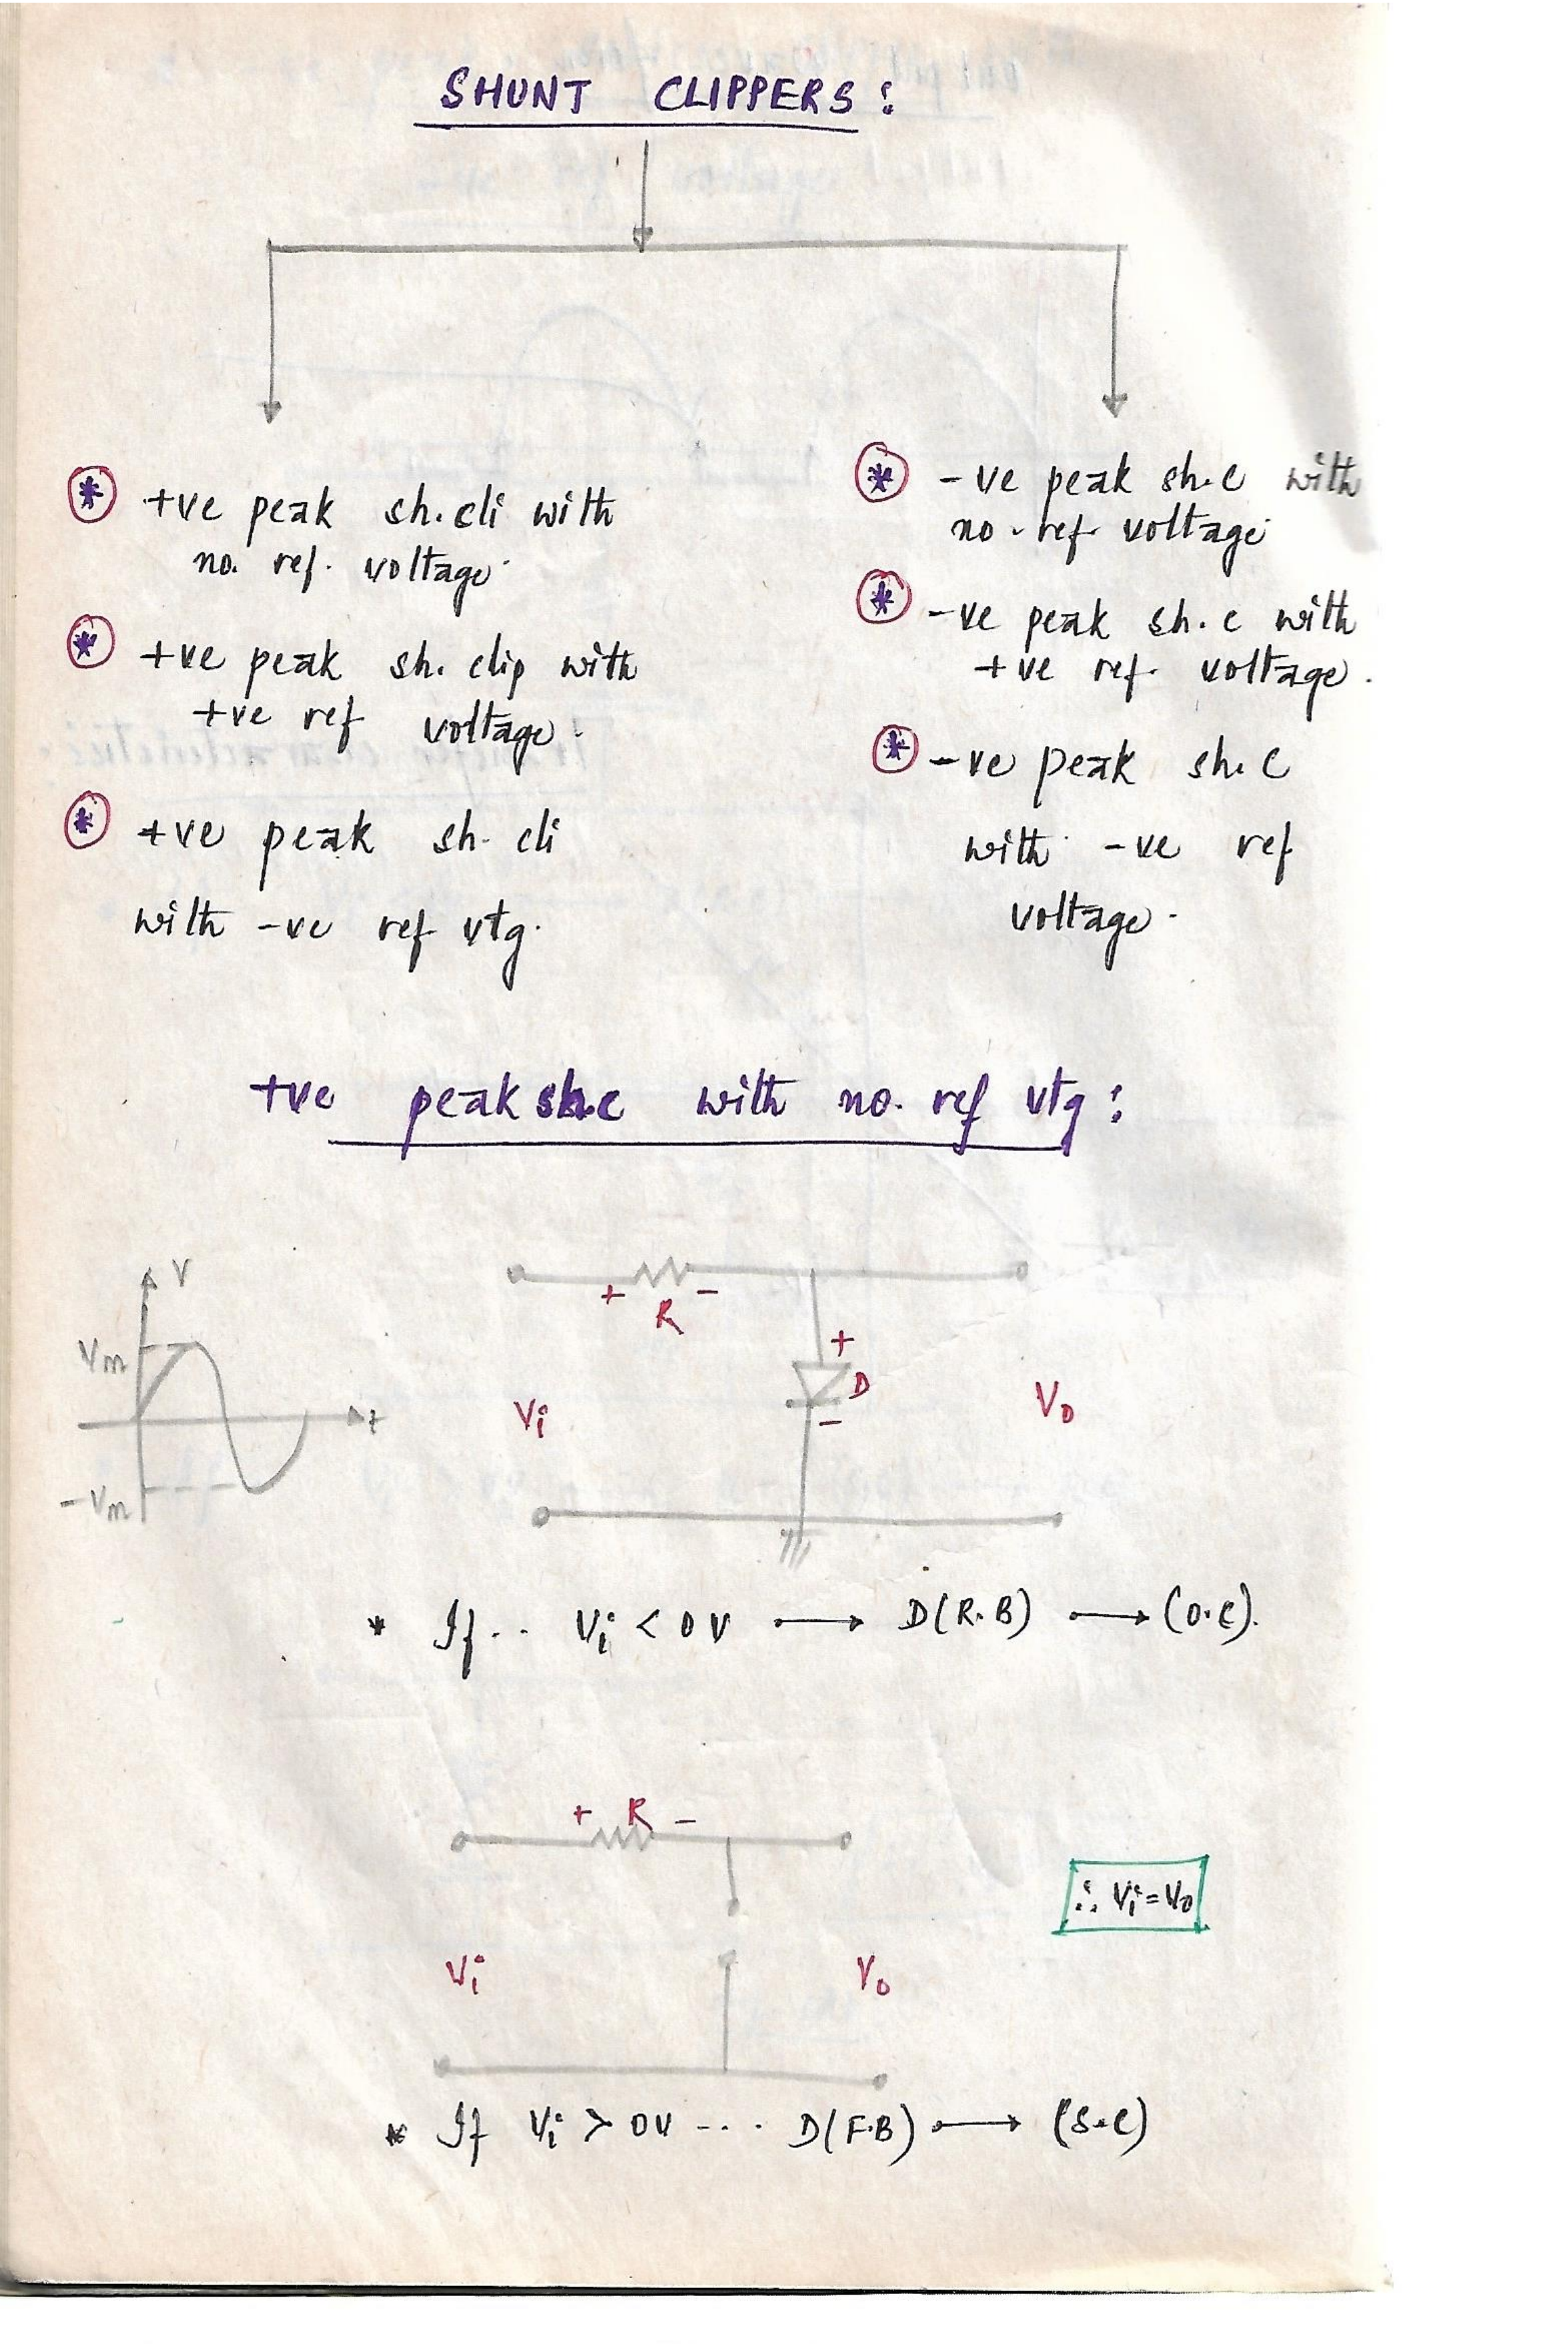 SHUNT CLIPPERS :
* +ve peak sh. cli with
no. ref. voltage.
* +ve peak sh. clip with
+ve ref voltage.
* +ve peak sh. cli
with -ve ref vtg.
* -ve peak sh.c with
no. ref. voltage
* -ve peak sh.c with
+ve ref. voltage.
* -ve peak sh.c
with -ve ref
voltage.
+ve peak sh.c with no. ref vtg :
V
Vm
t
-Vm
+ R -
+
D
-
Vi
Vo
* If.. Vi < 0V → D(R.B) → (O.C).
+ R -
∴ Vi = Vo
Vi
Vo
* If Vi > 0V ... D(F.B) → (S.C)